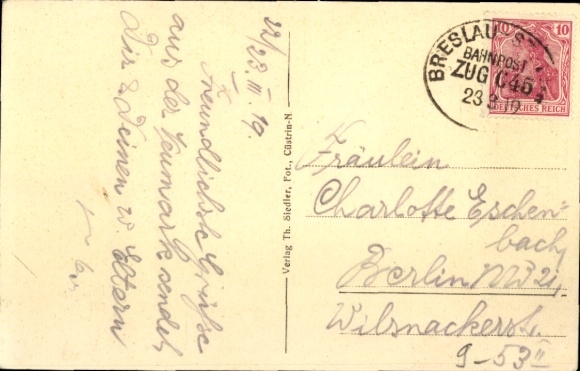 22/23. III. 19.
Freundlichste Grüße
aus der Neumark sendet
Dir & Deinen w. Eltern
Verlag Th. Siedler, Fot., Cüstrin-N.
BRESLAU
BAHNPOST
ZUG 645
23 3 19
10
DEUTSCHES REICH
Fräulein
Charlotte Eschen-
bach,
Berlin NW 21,
Wilsnackerst.
9-53 II